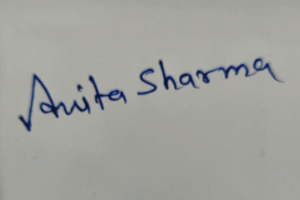 Anita Sharma